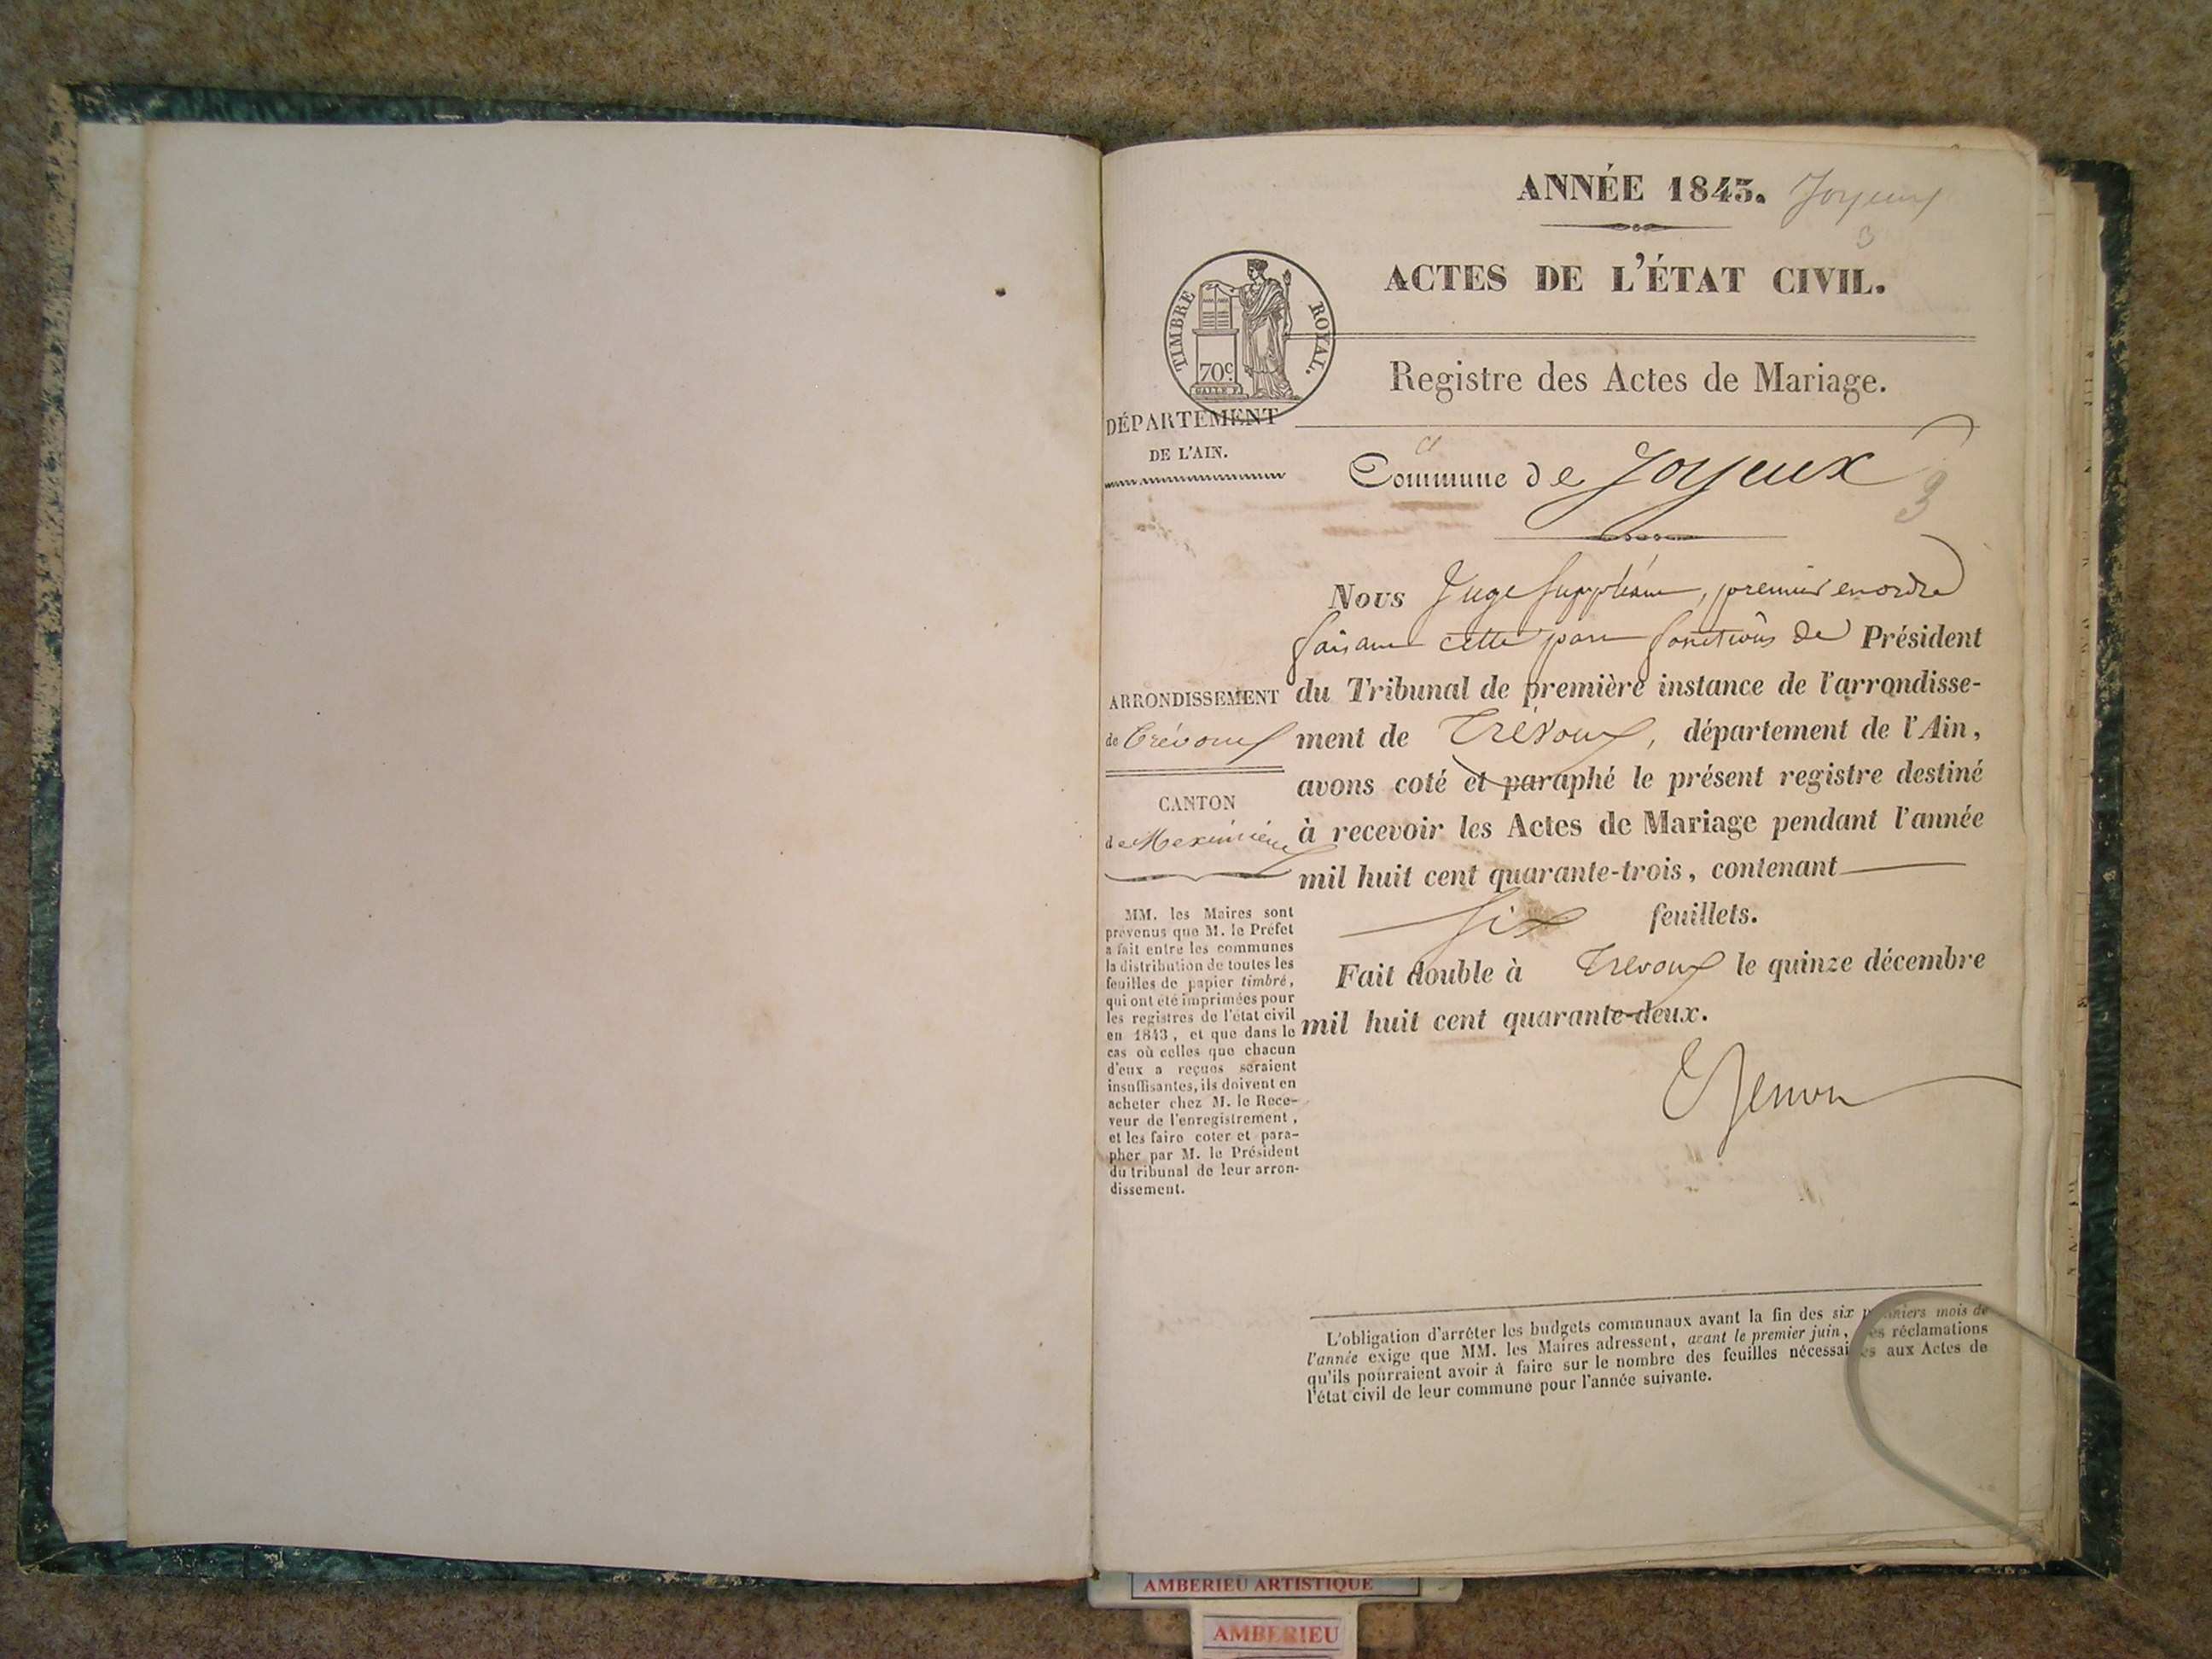 ANNÉE 1843. Joyeux
3
ACTES DE L'ÉTAT CIVIL.
TIMBRE ROYAL.
70c
Registre des Actes de Mariage.
DÉPARTEMENT
DE L'AIN.
Commune de Joyeux
3
Nous Juge suppléant, premier en ordre
faisant cette part fonctions de Président
du Tribunal de première instance de l'arrondisse-
ment de Trévoux, département de l'Ain,
avons coté et paraphé le présent registre destiné
à recevoir les Actes de Mariage pendant l'année
mil huit cent quarante-trois, contenant
six feuillets.
Fait double à Trévoux le quinze décembre
mil huit cent quarante-deux.
ARRONDISSEMENT
de Trévoux
CANTON
de Meximieux
MM. les Maires sont
prévenus que M. le Préfet
a fait entre les communes
la distribution de toutes les
feuilles de papier timbré,
qui ont été imprimées pour
les registres de l'état civil
en 1843, et que dans le
cas où celles que chacun
d'eux a reçues seraient
insuffisantes, ils doivent en
acheter chez M. le Rece-
veur de l'enregistrement,
et les faire coter et para-
pher par M. le Président
du tribunal de leur arron-
dissement.
L'obligation d'arrêter les budgets communaux avant la fin des six premiers mois de
l'année exige que MM. les Maires adressent, avant le premier juin, les réclamations
qu'ils pourraient avoir à faire sur le nombre des feuilles nécessaires aux Actes de
l'état civil de leur commune pour l'année suivante.
AMBERIEU ARTISTIQUE
AMBERIEU